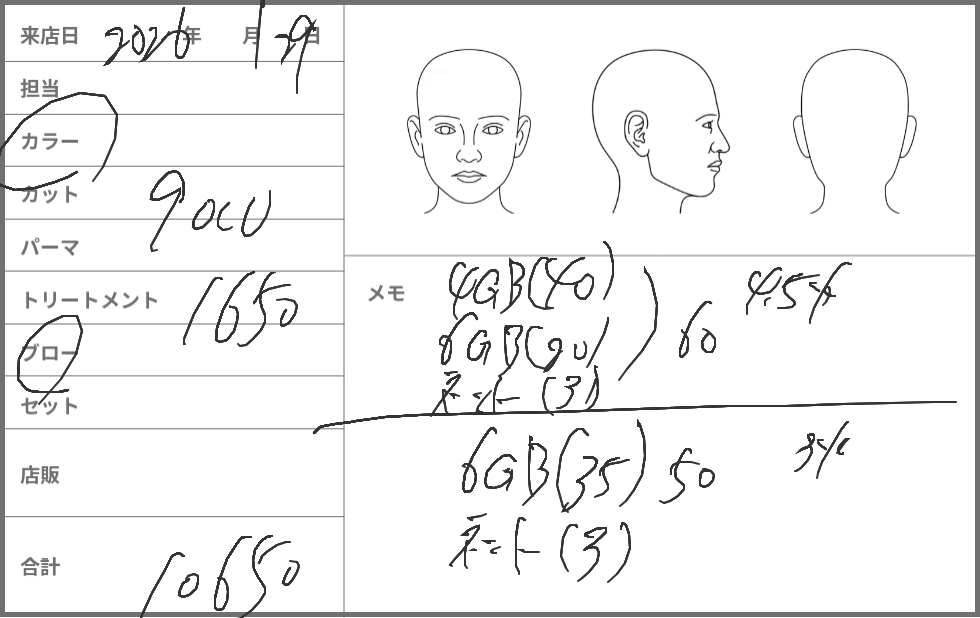 来店日 2026年 月 1 29日
担当
カラー
カット 9000
パーマ
トリートメント 1650
ブロー
セット
店販
合計 10650
メモ 4GB(40)
6GB(20) 60 4.5%
(3)
6GB(35) 50 3%
(3)